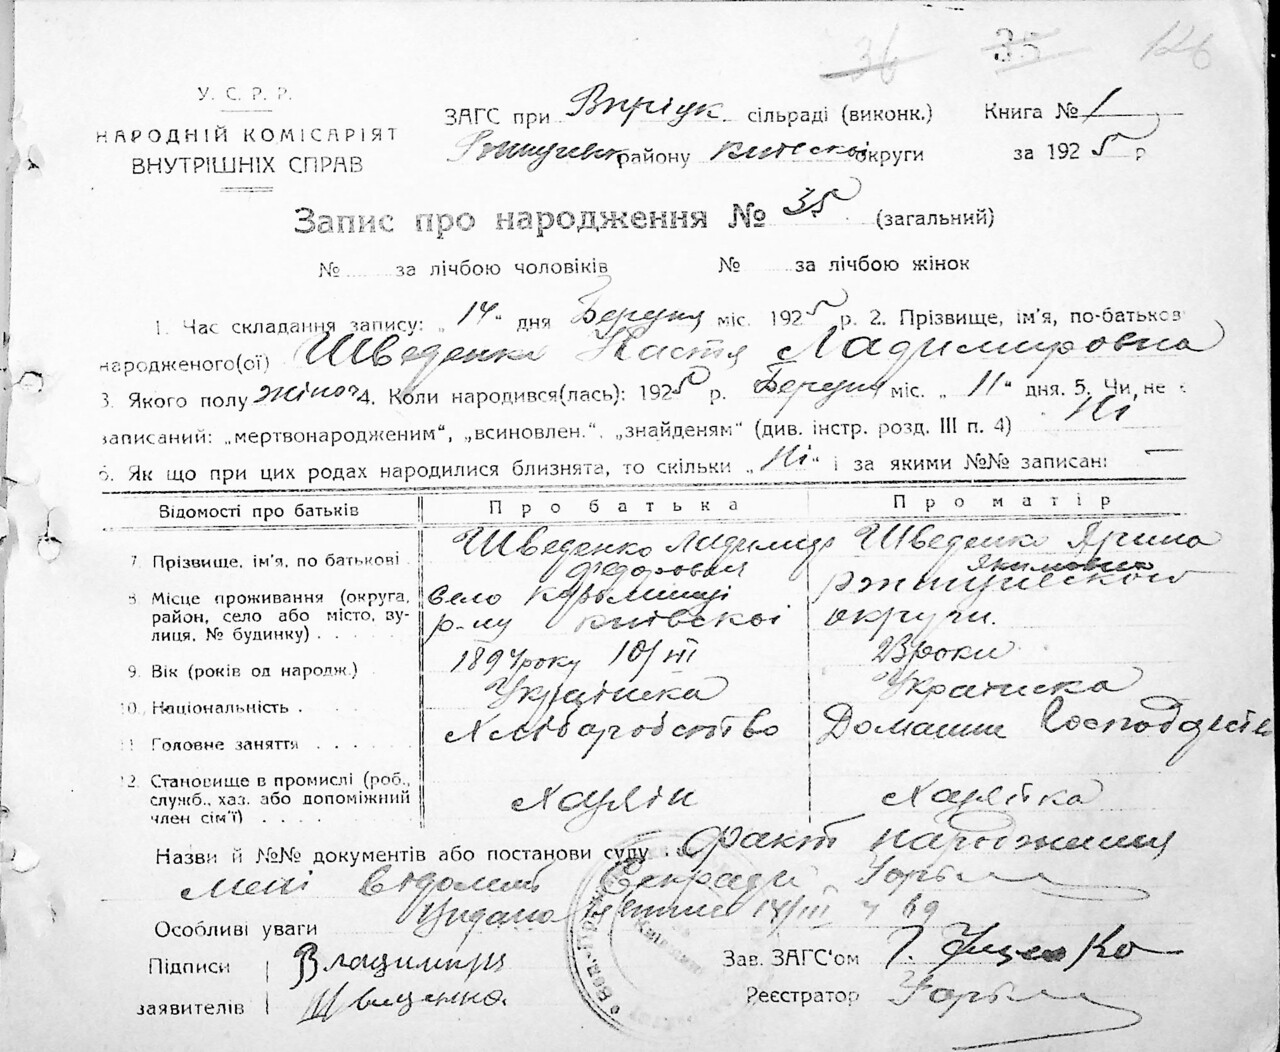 36 35 126
У. С. Р. Р.
НАРОДНІЙ КОМІСАРІЯТ
ВНУТРІШНІХ СПРАВ
ЗАГС при сільраді (виконк.) Книга № 1
району Київскоі округи за 1925 р
Запис про народження № 35 (загальний)
№ за лічбою чоловіків № за лічбою жінок
1. Час складання запису: „14“ дня міс. 1925 р. 2. Прізвище, ім'я, по-батькові
народженого(ої) Шведенко Настя Ладимировна
3. Якого полу жіноч 4. Коли народився(лась): 1925 р. міс. „11“ дня. 5. Чи, не є
записаний: „мертвонародженим“, „всиновлен.“, „знайденям“ (див. інстр. розд. III п. 4) Ні
6. Як що при цих родах народилися близнята, то скільки „Ні“ і за якими №№ записані —
Відомості про батьків Про батька Про матір
7. Прізвище, ім'я, по батькові Шведенко Ладимир Федорович Шведенко Ярина Якимовна
8. Місце проживання (округа, район, село або місто, вулиця, № будинку) Село р-ну Київскоі округи.
9. Вік (років од народж.) 1894 року 10/III 23 роки
10. Національність Українка Українска
11. Головне заняття Хліборобство Домашне Господарство
12. Становище в промислі (роб., служб., хаз. або допоміжний член сім'ї) Хазяін Хазяйка
Назви й №№ документів або постанови суду Факт народження
мені відомий Секрадь
Особливі уваги 14/III
Підписи Владимир Зав. ЗАГС'ом
заявителів Реєстратор